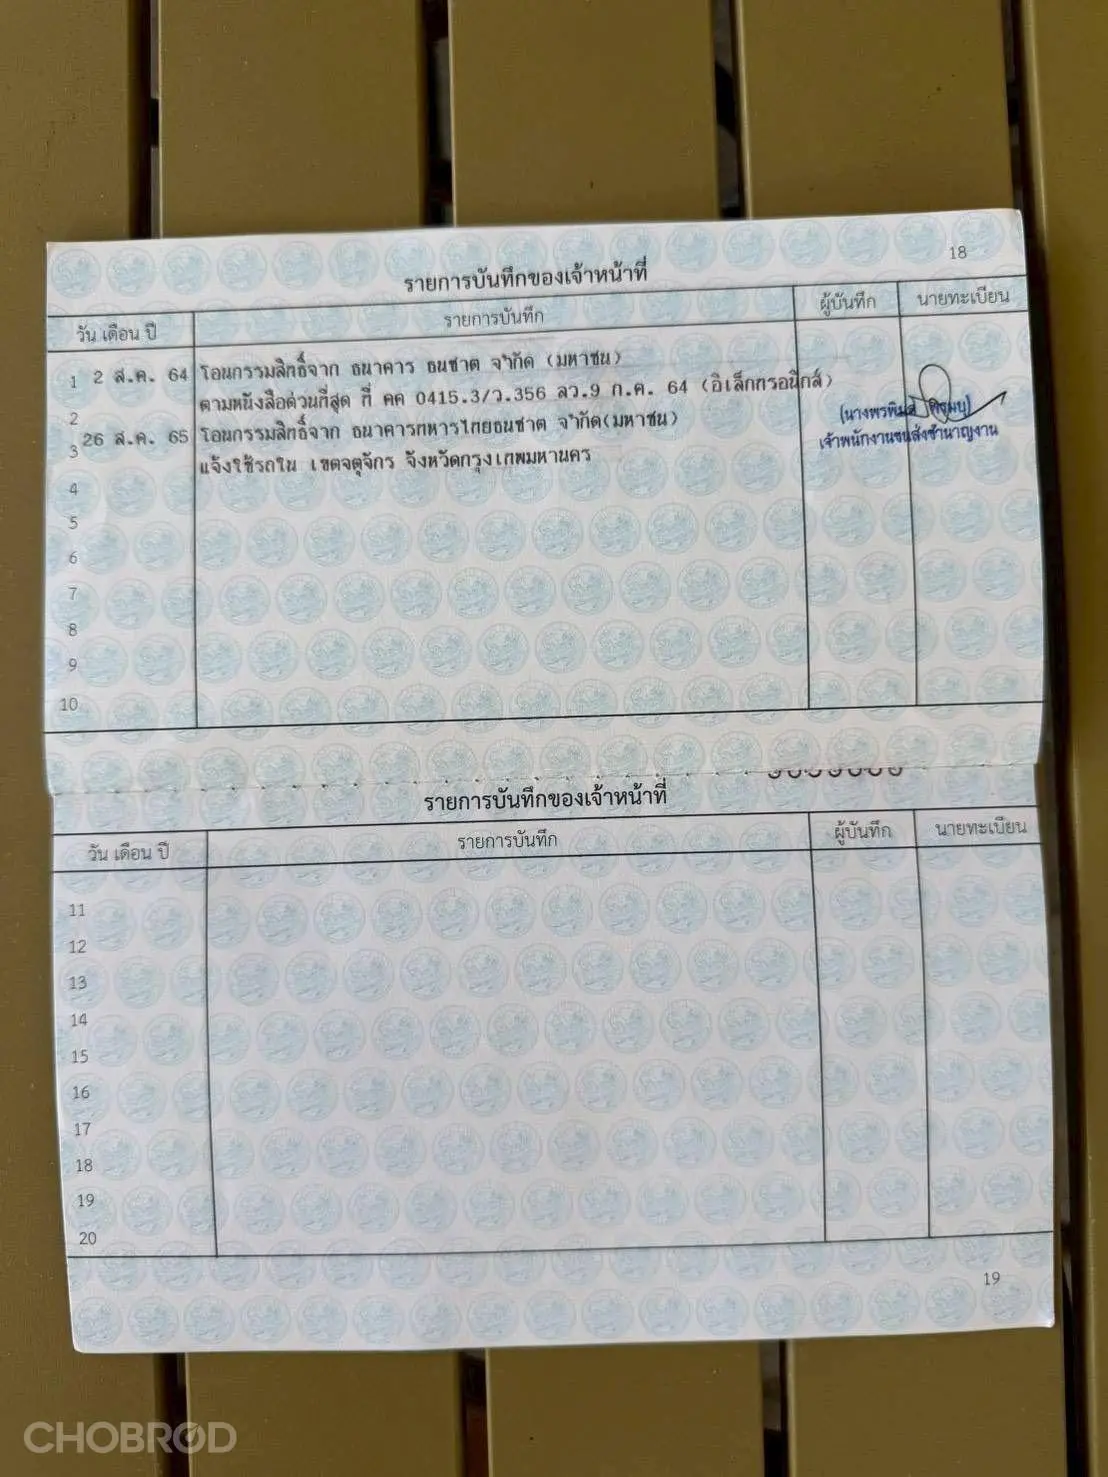 18
รายการบันทึกของเจ้าหน้าที่
วัน เดือน ปี รายการบันทึก ผู้บันทึก นายทะเบียน
1 2 ส.ค. 64 โอนกรรมสิทธิ์จาก ธนาคาร ธนชาต จำกัด (มหาชน)
2 ตามหนังสือด่วนที่สุด ที่ คค 0415.3/ว.356 ลว.9 ก.ค. 64 (อิเล็กทรอนิกส์)
3 26 ส.ค. 65 โอนกรรมสิทธิ์จาก ธนาคารทหารไทยธนชาต จำกัด(มหาชน)
แจ้งใช้รถใน เขตจตุจักร จังหวัดกรุงเทพมหานคร
เจ้าพนักงานขนส่งชำนาญงาน
4
5
6
7
8
9
10
รายการบันทึกของเจ้าหน้าที่
วัน เดือน ปี รายการบันทึก ผู้บันทึก นายทะเบียน
11
12
13
14
15
16
17
18
19
20
19
CHOBROD